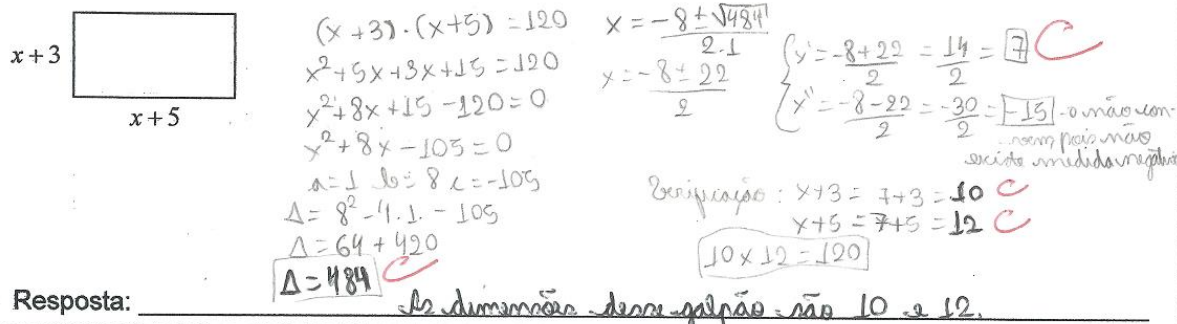 x + 3
x + 5
(x + 3) . (x + 5) = 120
x² + 5x + 3x + 15 = 120
x² + 8x + 15 - 120 = 0
x² + 8x - 105 = 0
a = 1 b = 8 c = -105
Δ = 8² - 4 . 1 . - 105
Δ = 64 + 420
Δ = 484 C
x = -8 ± √484 / 2.1
x = -8 ± 22 / 2
x' = -8 + 22 / 2 = 14 / 2 = 7 C
x" = -8 - 22 / 2 = -30 / 2 = -15 → não con-
vem pois não
existe medida negativa
Verificação : x + 3 = 7 + 3 = 10 C
x + 5 = 7 + 5 = 12 C
10 x 12 = 120
Resposta: As dimensões desse galpão são 10 e 12.